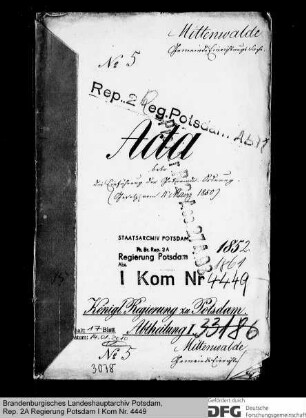 Mittenwalde
No 5
Rep. 2 Reg. Potsdam
Acta
betr.
die Einführung der Gemeinde Ordnung
(Gesetz vom 11 März 1850)
STAATSARCHIV POTSDAM
Pr. Br. Rep. 2A
Regierung Potsdam
Abt.
I Kom Nr 4449
1852
1861
Königl. Regierung zu Potsdam
Abtheilung I.
33186
17 Blatt
No 5
Mittenwalde
3078
Brandenburgisches Landeshauptarchiv Potsdam,
Rep. 2A Regierung Potsdam I Kom Nr. 4449
Gefördert durch
DFG Deutsche
Forschungsgemeinschaft